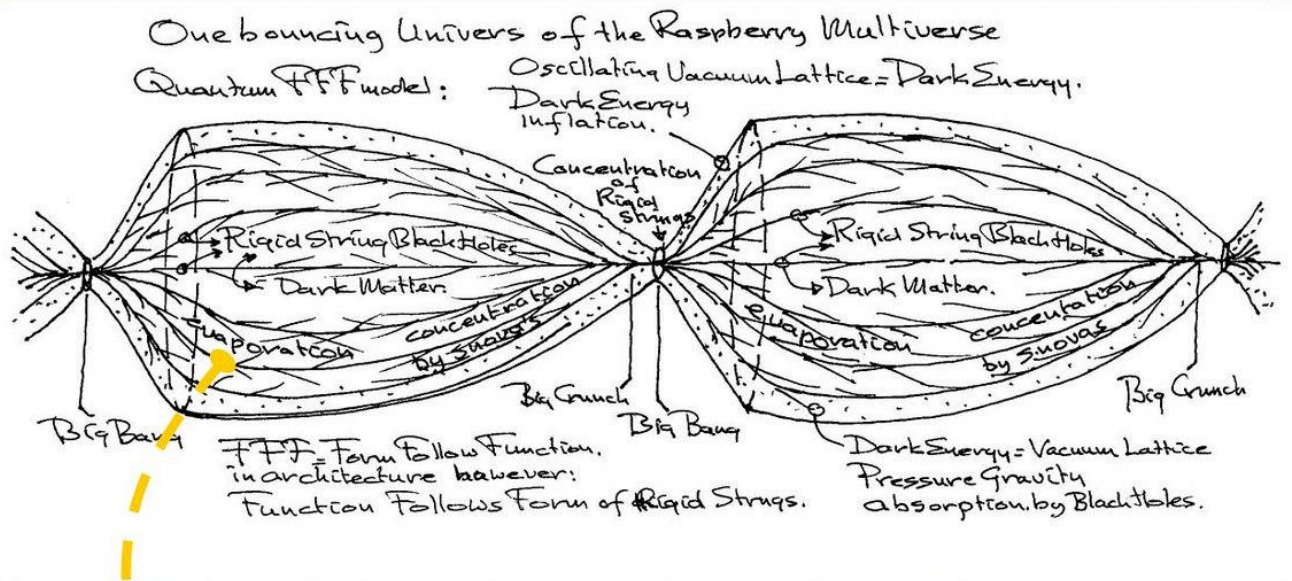 One bouncing Univers of the Raspberry Multiverse
Quantum FFF model:
Oscillating Vacuum Lattice = Dark Energy.
Dark Energy
inflation.
Concentration
of
Rigid
Strings
Rigid String Black Holes
Dark Matter.
evaporation
concentration
by snova's
Big Bang
Big Crunch
Big Bang
Rigid String Black Holes
Dark Matter.
evaporation
concentration
by snovas
Big Crunch
FFF = Form Follow Function.
in architecture however:
Function Follows Form of Rigid Strngs.
Dark Energy = Vacuum Lattice
Pressure Gravity
absorption. by Black Holes.